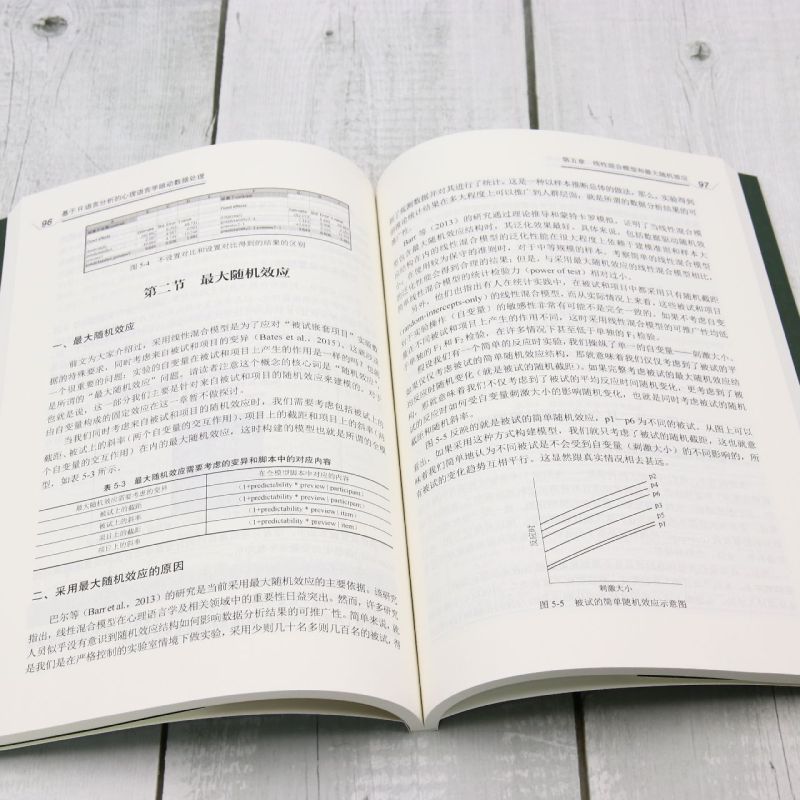 96 基于R语言分析的心理语言学眼动数据处理
图 5-4 不设置对比和设置对比得到的结果的区别
第二节 最大随机效应
一、最大随机效应
前文为大家介绍过，采用线性混合模型是为了应对“被试嵌套项目”实验数
据的特殊要求，同时考虑来自被试和项目的变异（Bates et al., 2015）。这就涉及
一个很重要的问题：实验的自变量在被试和项目上产生的作用是一样的吗？也就
是所谓的“最大随机效应”问题。请读者注意这个概念的核心词是“随机效应”，
也就是说，这一部分我们主要是针对来自被试和项目的随机效应来建模的。对于
由自变量构成的固定效应在这一章暂不做探讨。
当我们同时考虑来自被试和项目的随机效应时，我们需要考虑包括被试上的
截距、被试上的斜率（两个自变量的交互作用）、项目上的截距和项目上的斜率（两
个自变量的交互作用）在内的最大随机效应，这时构建的模型也就是所谓的全模
型，如表 5-3 所示。
表 5-3 最大随机效应需要考虑的变异和脚本中的对应内容
最大随机效应需要考虑的变异 在全模型脚本中对应的内容
被试上的截距 (1+predictability * preview | participant)
被试上的斜率 (1+predictability * preview | participant)
项目上的截距 (1+predictability * preview | item)
项目上的斜率 (1+predictability * preview | item)
二、采用最大随机效应的原因
巴尔等（Barr et al., 2013）的研究是当前采用最大随机效应的主要依据。该研究
指出，线性混合模型在心理语言学及相关领域中的重要性日益突出。然而，许多研究
人员似乎没有意识到随机效应结构如何影响数据分析结果的可推广性。简单来说，就
是我们是在严格控制的实验室情境下做实验，采用少则几十名多则几百名的被试，得
第五章 线性混合模型和最大随机效应 97
到实测数据并对其进行了统计。这是一种以样本推断总体的做法。那么，实验得到
的推论统计结果在多大程度上可以推广到人群层面，就是所谓的数据分析结果的可
推广性。
Barr 等（2013）的研究通过理论推导和蒙特卡罗模拟，证明了当线性混合
模型包含最大随机效应结构时，其泛化效果最好。具体来说，包括数据驱动随机效
应结构在内的线性混合模型的泛化性能在很大程度上依赖于建模准则和样本大
小，在使用较为保守的准则时，对于中等规模的样本，考察简单的线性混合模型
泛化性能会得到合理的结果；但是，与采用最大随机效应的线性混合模型相比，
线性混合模型的统计检验力（power of test）相对过小。
另外，他们也指出有人在统计实践中，在被试和项目中都采用只有随机截距
（random-intercepts-only）的线性混合模型，而从实际情况上来看，这些被试和项目
对于实验操作（自变量）的敏感性非常有可能不是完全一致的。如果不考虑自变
量在不同被试和项目上产生的作用不同，这时采用线性混合模型的可推广性均低
于单独的 F1 和 F2 检验，在许多情况下甚至低于单独的 F1 检验。
假设我们有一个简单的反应时实验，我们操纵了单一的自变量——刺激大小。
如果仅仅考虑被试的简单随机效应结构，那就意味着我们仅仅考虑到了被试的平
均反应时随机变化（就是被试的随机截距）。如果完整考虑被试的最大随机效应结
构，那就意味着我们不仅考虑到了被试的平均反应时间随机变化，更考虑到了被
试的反应时如何受自变量刺激大小的影响随机变化，也就是同时考虑被试的随机
截距和随机斜率。
图 5-5 反映的就是被试的简单随机效应，p1—p6 为不同的被试。从图上可以
看出，如果采用这种方式构建模型，我们就只考虑了被试的随机截距，这也就意
味着我们简单地认为不同被试是不会受到自变量（刺激大小）的不同影响的，所
有被试的变化趋势互相平行。这显然跟真实情况相去甚远。
反应时
p2
p4
p6
p3
p5
p1
刺激大小
图 5-5 被试的简单随机效应示意图